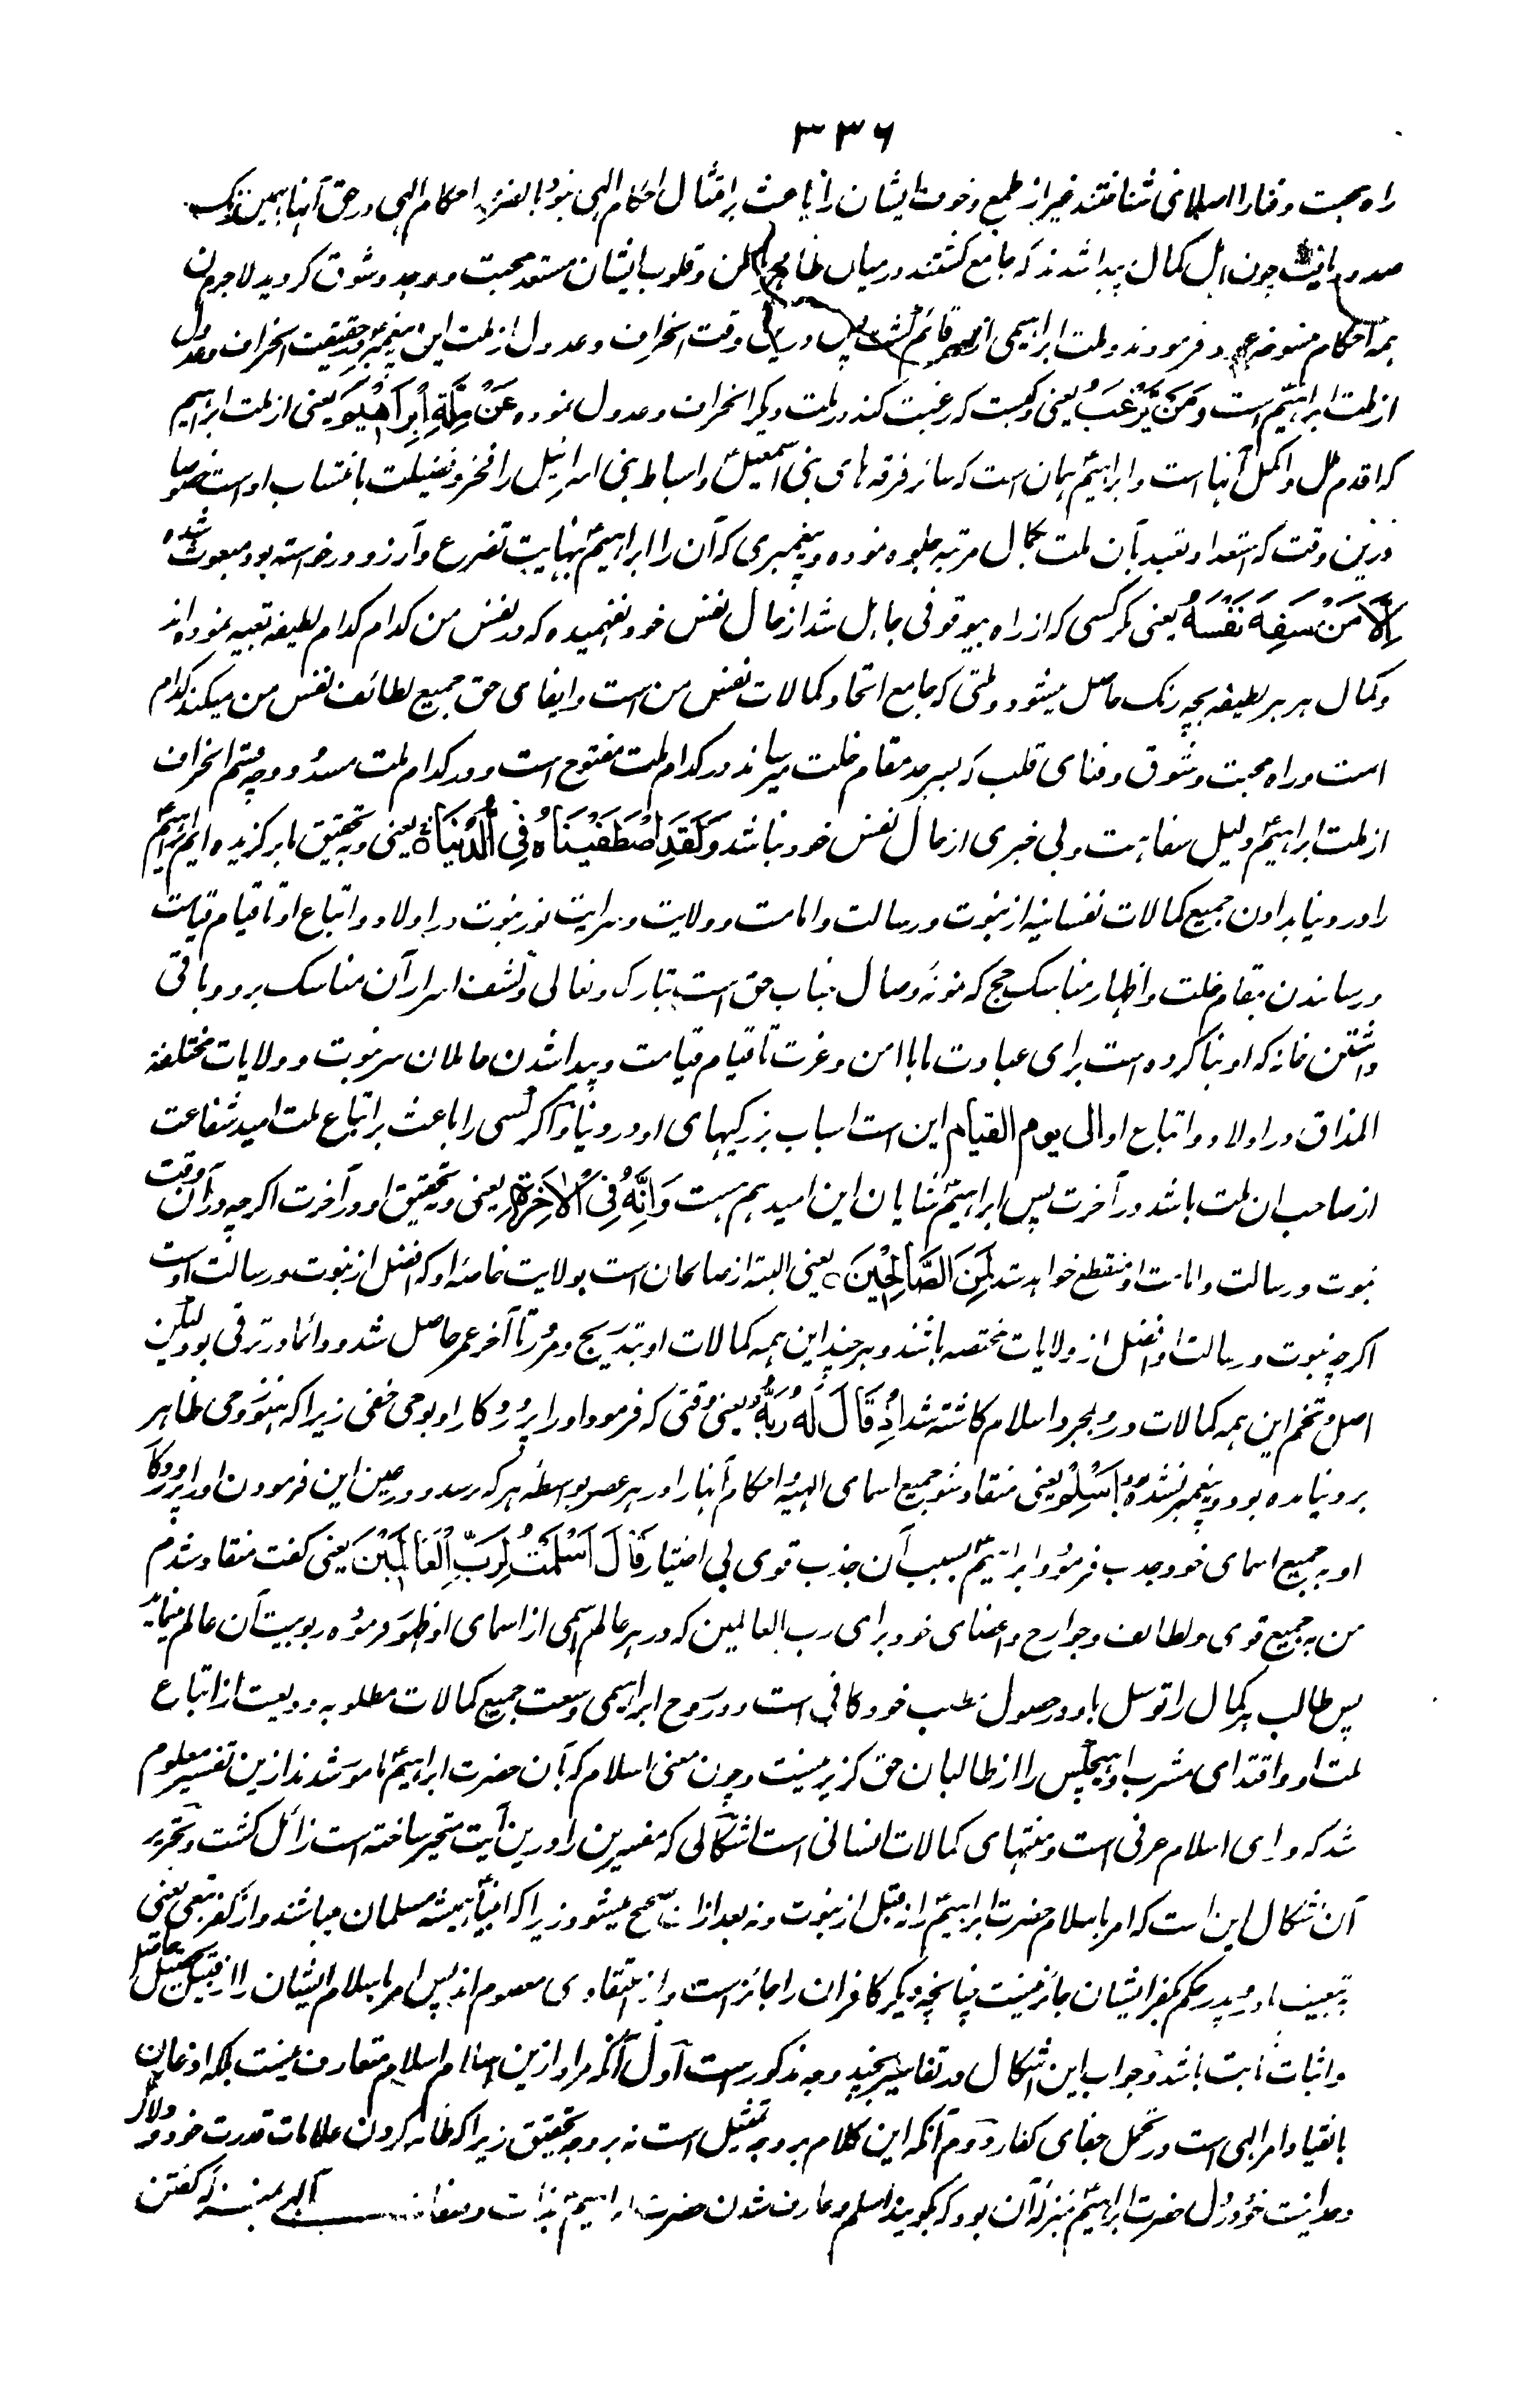 ۳۳۶
راه محبت و فنا را اصلا نمی شناختند غیر از طمع و خوف ایشان را باعث بر امتثال احکام الهی نبود بالضرور احکام الهی در حق آنها بهمین رنگ
صدور یافت چون اهل کمال پیدا شدند که جامع گشتند درمیان ظاهر و باطن و قلوب ایشان مستعد محبت و وجد و شوق گردید لاجرم آن
همه احکام منسوخه فرمودند و ملت ابراهیمی از سر قائم گشت پس درین وقت انحراف و عدول از ملت این پیغمبر در حقیقت انحراف و عدول
از ملت ابراهیم است وَمَنْ يَّرْغَبُ یعنی و کیست که رغبت کند در ملت دیگر انحراف و عدول نموده عَنْ مِلَّةِ اِبْرَاهِيْمَ یعنی از ملت ابراهیم
که اقدم ملل و اکمل آنها است و ابراهیم همان است که سائر فرقه های بنی اسمعیل و اسباط بنی اسرائیل را فخر و فضیلت بانتساب اوست خصوصا
درین وقت که استعداد تعبد بآن ملت بکمال مرتبه جلوه نموده و پیغمبری که آن را ابراهیم بنهایت تضرع و آرزو درخواسته بود مبعوث شده
اِلَّا مَنْ سَفِهَ نَفْسَهُ یعنی مگر کسی که از راه بیوقوفی جاهل شد از حال نفس خود و نفهمیده که در نفس من کدام کدام لطیفه تعبیه نموده اند
و کمال هر هر لطیفه بچه رنگ حاصل میشود و ملتی که جامع اتحاد کمالات نفس من است و ایفای حق جمیع لطائف نفس من میکند کدام
است و راه محبت و شوق و فنای قلب که بسرحد مقام خلت میرساند در کدام ملت مفتوح است و در کدام ملت مسدود و چه قسم انحراف
از ملت ابراهیم دلیل سفاهت و بی خبری از حال نفس خود نباشد وَلَقَدِ اصْطَفَيْنَاهُ فِي الدُّنْيَا یعنی و به تحقیق ما برگزیده ایم ابراهیم
را در دنیا بدادن جمیع کمالات نفسانیه از نبوت و رسالت و امامت و ولایت و سرایت نور نبوت در اولاد و اتباع او تا قیام قیامت
و رساندن بمقام خلت و اظهار مناسک حج که نمونه وصال جناب حق است تبارک و تعالی و کشف اسرار آن مناسک برو و باقی
داشتن خانه که او بنا کرده است برای عبادت ما با امن و عزت تا قیام قیامت و پیدا شدن حاملان سر نبوت و ولایات مختلفة
المذاق در اولاد و اتباع او الی یوم القیام این است اسباب بزرگیهای او در دنیا و اگر کسی را باعث بر اتباع ملت امید شفاعت
از صاحب ان ملت باشد در آخرت پس ابراهیم شایان این امید هم هست وَاِنَّهُ فِي الْاٰخِرَةِ یعنی و به تحقیق او در آخرت اگرچه در آن وقت
نبوت و رسالت و امامت او منقطع خواهد شد لَمِنَ الصَّالِحِيْنَ یعنی البته از صالحان است بولایت خاصه او که افضل از نبوت و رسالت اوست
اگرچه نبوت و رسالت او افضل از ولایات مختصه باشند و هر چند این همه کمالات او بتدریج و مرور تا آخر عمر حاصل شد و دائما در ترقی بود لیکن
اصل و تخم این همه کمالات در و بمجرد اسلام کاشته شد اِذْ قَالَ لَهُ رَبُّهُ یعنی وقتی که فرمود او را پروردگار او بوحی خفی زیرا که هنوز وحی ظاهر
برو نیامده بود و پیغمبر نشده بود اَسْلِمْ یعنی منقاد شو جمیع اسمای الهیه و احکام آنها را در هر عصر بواسطه هر که رسد و در عین این فرمودن او را پروردگار
او به جمیع اسمای خود جذب فرمود و ابراهیم بسبب آن جذب قوی بی اختیار قَالَ اَسْلَمْتُ لِرَبِّ الْعَالَمِيْنَ یعنی گفت منقاد شدم
من به جمیع قوی و لطائف و جوارح و اعضای خود برای رب العالمین که در هر عالم اسمی از اسمای او ظهور فرموده ربوبیت آن عالم مینماید
پس طالب هر کمال را توسل باو در حصول مطلب خود کافی است و در روح ابراهیمی وسعت جمیع کمالات مطلوبه ودیعت از اتباع
ملت او و اقتدای مشرب او هیچکس را از طالبان حق گزیر نیست و چون معنی اسلام که بآن حضرت ابراهیم مامور شدند ازین تفسیر معلوم
شد که ورای اسلام عرفی است و منتهای کمالات انسانی است اشکالی که مفسرین را درین آیت متحیر ساخته است زائل گشت و تحریر
آن اشکال این است که امر باسلام حضرت ابراهیم را نه قبل از نبوت و نه بعد ازان صحیح میشود زیرا که انبیا همیشه مسلمان میباشند و از کفر تبعی یعنی
به تبعیت مادر و پدر حکم بکفر ایشان جائز نیست چنانچه دیگر کافران را جائز است و از اعتقادی معصوم اند پس امر باسلام ایشان را از قبیل تحصیل حاصل
و اثبات ثابت باشد و جواب این اشکال در تفاسیر بچند وجه مذکور است اول آنکه مراد ازین اسلام اسلام متعارف نیست بلکه اذعان
بانقیاد امر الهی است در تحمل جفای کفار دوم آنکه این کلام بر وجه تمثیل است نه بر وجه تحقیق زیرا که ظاهر کردن علامات قدرت خود و دلائل
وحدانیت خود در دل حضرت ابراهیم بمنزله آن بود که بگویند اسلم و عارف شدن حضرت ابراهیم بذات و صفات الهی بمنزله گفتن